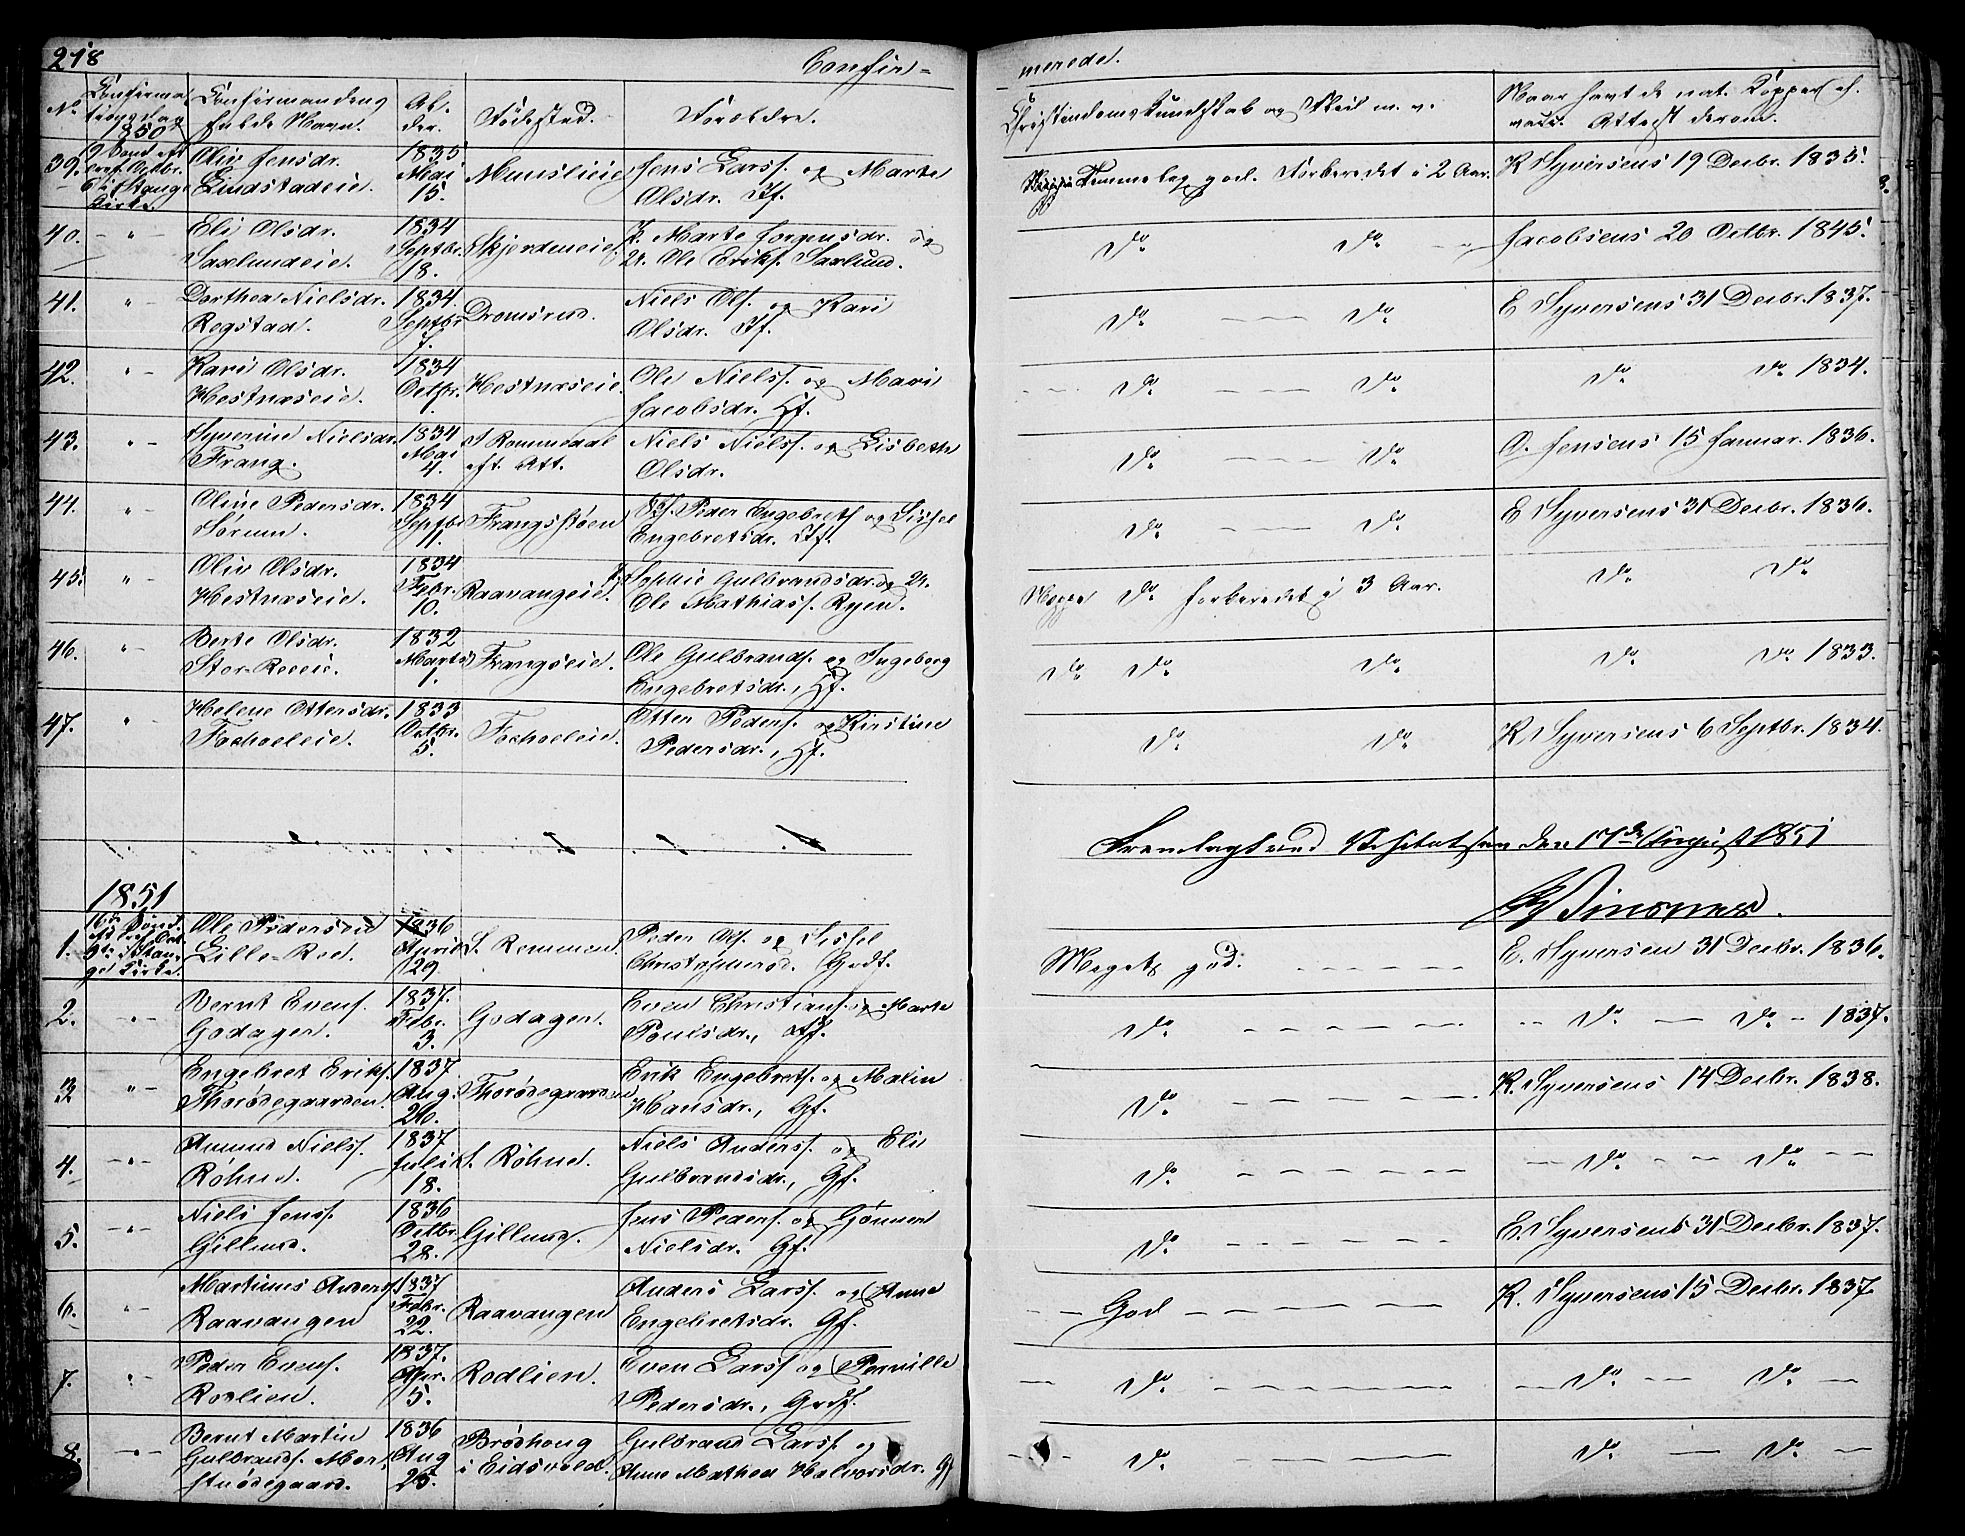 218
Confir=
merede.
No.
Confirma
tionsdag
1850
Confirmandens
fulde Navn.
Al-
der.
Fødested.
Forældre.
Christendomskundskab og Flid m. v.
Naar havt de nat. Kopper el.
vacc. Attest derom.
39. 
Oliv Jensdr.
Lindstadeie.
1835
Mai
15.
Jens Larss. og Marte
Olsdr. If.
Kjendskab god. Forberedet i 2 Aar.
K Syversens 19 Decbr. 1835.
40. - " -
Eli Olsdr.
Saxlundeie.
1834
Septbr.
18.
Skjerdineie.
F. Marte Jorgensdr. og
U. Ole Eriks. Saxlund.
Do Do
Jacobsens 20 Octbr. 1845.
41. " -
Dorthea Nielsdr.
Rogstad.
1834.
Septbr
7.
Dromsrud.
Niels Ols. og Kari
Olsdr. If.
Do - - - Do
E Syversens 31 Decbr. 1837.
42. " -
Kari Olsdr.
Hestnæseie.
1834
Octbr.
1.
Hestnæseie.
Ole Niels. og Mari
Jacobsdr. Hf.
Do - - - Do
Do Do 1834.
43. " -
Syverine Nielsdr.
Frang.
1834
Mai
4.
I Rommedal
eft. Att.
Niels Niels. og Lisbeth
Olsdr.
Do - - Do
O. Jensens 15 Januar. 1836.
44. " -
Oline Pedersdr.
Sørum.
1834
Septbr
11.
Frangsstøen
Peder Engebrets og Sissel
Engebretsdr. If.
Do - - Do
E Syversens 31 Decbr. 1836.
45. " -
Oliv Olsdr.
Hestnæseie.
1834
Febr.
10.
Raavangeie.
F. Sophie Gulbrandsdr. og U.
Ole Mathiass. Ryen.
Do forberedet i 3 Aar.
Do Do
46. " -
Berte Olsdr.
Stor-Roeeie.
1832
Marts
1.
Frangseie.
Ole Gulbrands. og Ingeborg
Engebretsdr., Hf.
Do Do Do
Do Do 1833.
47. " -
Helene Ottersdr.
Fochoeleie.
1833
Octbr.
5.
Fochoeleie.
Otter Peders. og Kirstine
Pedersdr., Hf.
Do Do
K Syversens 6 Septbr. 1834.
Fremlagt ved Visitatsen den 17de August 1851
1851
1.
Ole Pedersen
Lille-Roe.
1836
April
29
Peder Ols. og Sissel
Christophersd. Godt.
Meget god. - - - - -
E. Syversen 31 Decbr. 1836.
2. - " -
Bernt Evens.
Godager.
1837.
Febr.
3.
Godager.
Even Christians. og Marte
Poulsdr., Gf.
Do - - - - - -
- - Do - Do - 1837.
3 " -
Engebret Eriks.
Thorødegaarden.
1837
Aug.
26.
Thorødegaarden
Erik Engebrets. og Malin
Hansdr., Gf.
Do - - - - - -
K. Syversens 14 Decbr. 1838.
4. - " -
Amund Niels.
Røhne.
1837
Juli
18.
S. Røhne.
Niels Anders. og Eli
Gulbrandsdr., Gf.
Do - - - - - -
- Do - - Do - -
5. - " -
Niels Jens.
Gillund.
1836
Octbr.
28.
Gillund.
Jens Peders. og Gønner
Nielsdr. Gf.
Do - - - - - -
E. Syversens 31 Decbr. 1837.
6. " -
Martinus Anders
Raavangen
1837
Febr.
22.
Raavangen
Anders Larss. og Anne
Engebretsdr. Gf.
- - God - - - - - -
K. Syversens 15 Decbr. 1837.
7. " -
Peder Evens.
Rodlien.
1837.
Apr.
5.
Rodlien.
Even Larss og Pernille
Pedersdr., Gaf.
- - Do - - - - - -
- - Do - - Do -
8. - " -
Bernt Martin
Gulbrands. Mor-
stuødegaard.
1836
Aug
25.
Brødhoug
i Eidsvold.
Gulbrand Larss. og
Anne Mathea Halvorsdr. Gf
- - Do - - - - - -
Do - Do -